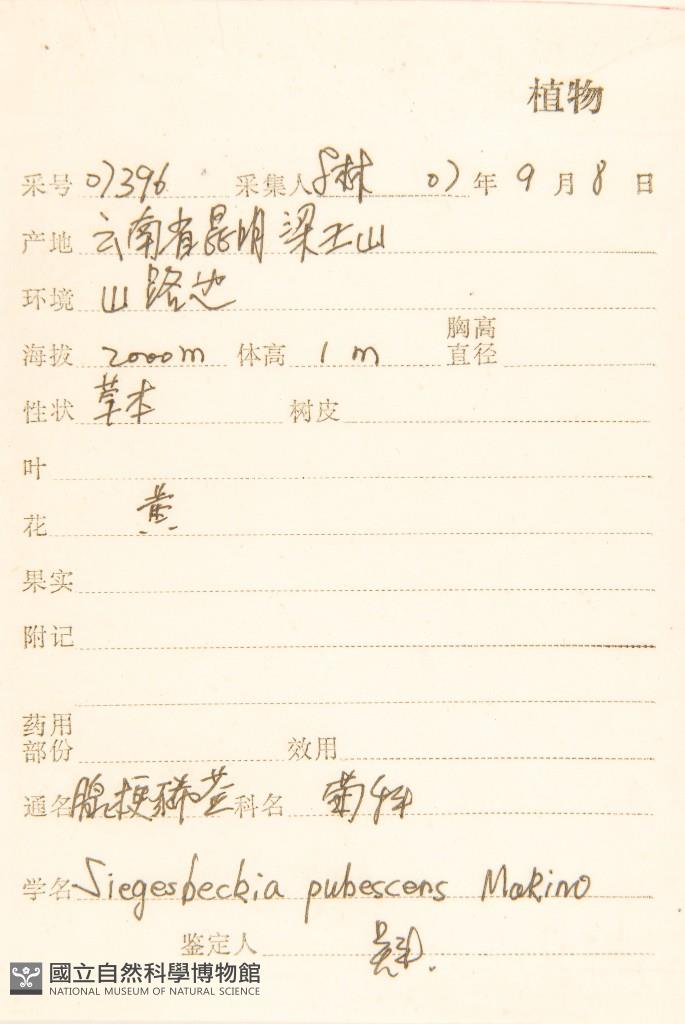 植物
采号 07396 采集人 林 07 年 9 月 8 日
产地 云南省昆明梁王山
环境 山路边
胸高
海拔 2000m 体高 1 m 直径
性状 草本 树皮
叶
花 黄
果实
附记
药用
部份 效用
通名 腺梗豨莶 科名 菊科
学名 Siegesbeckia pubescens Makino
鉴定人
國立自然科學博物館
NATIONAL MUSEUM OF NATURAL SCIENCE